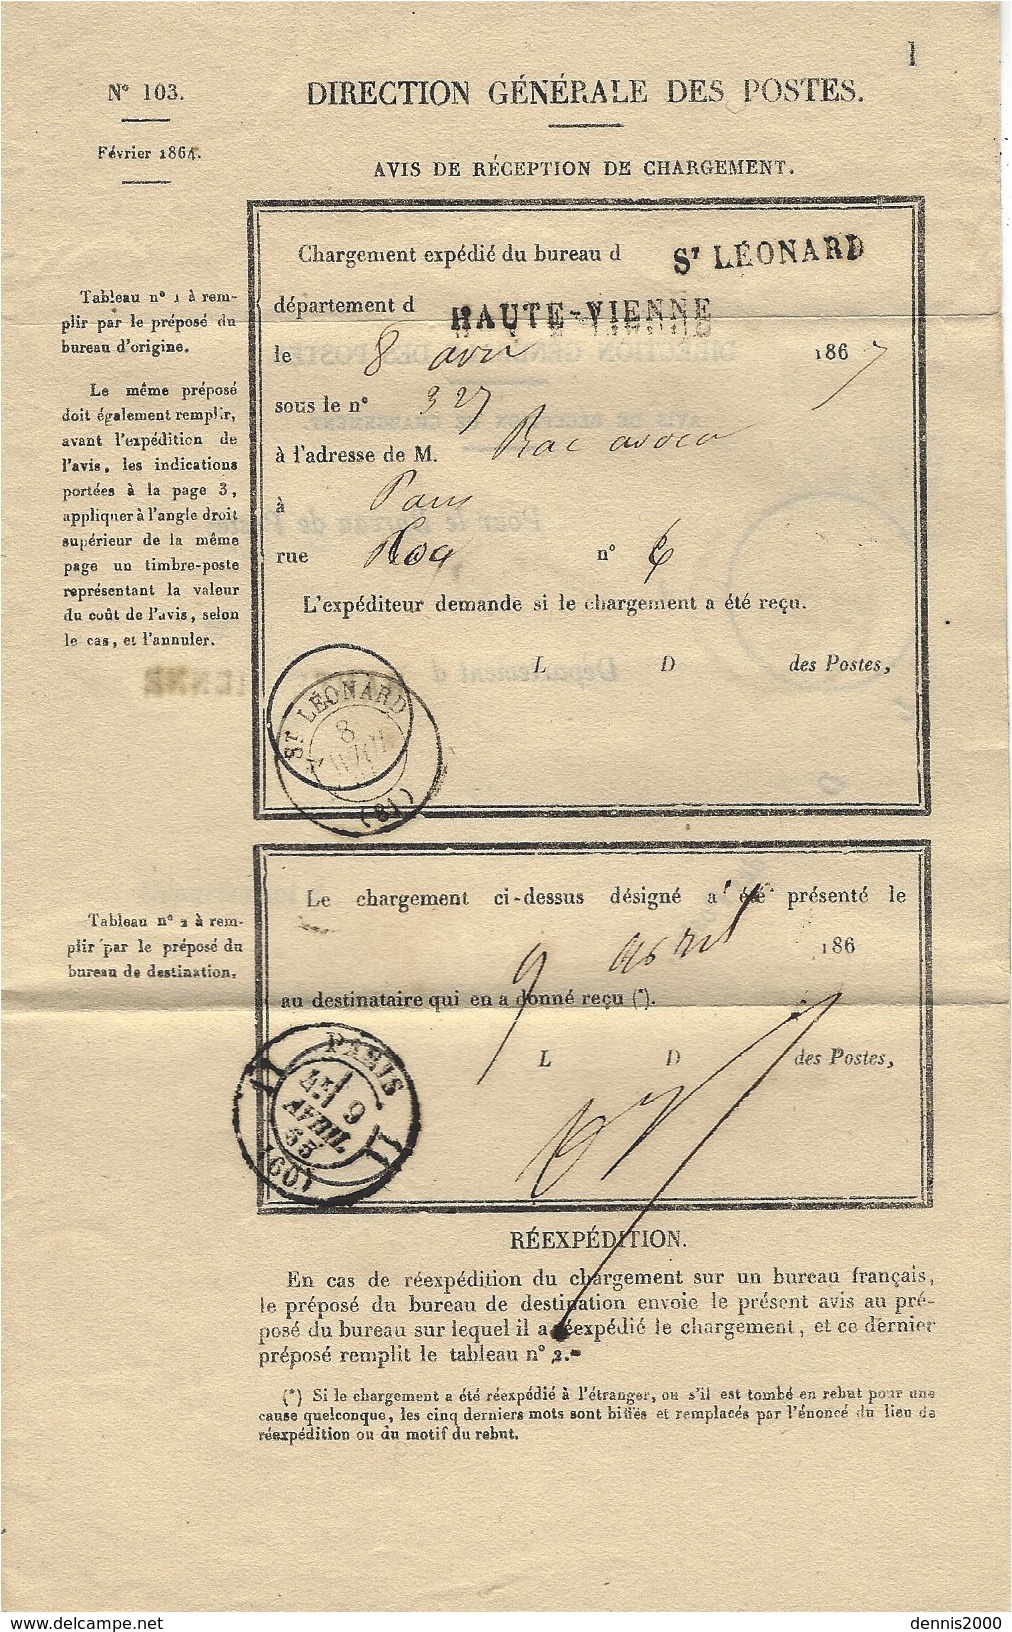 1
N° 103.
DIRECTION GÉNÉRALE DES POSTES.
Février 1864.
AVIS DE RÉCEPTION DE CHARGEMENT.
Chargement expédié du bureau d ST LÉONARD
département d HAUTE-VIENNE
le 8 avril 1867
sous le n° 327
à l'adresse de M. Bac avocat
à Paris
rue n° 6
L'expéditeur demande si le chargement a été reçu.
L D des Postes,
Tableau n° 1 à rem-
plir par le préposé du
bureau d'origine.
Le même préposé
doit également remplir,
avant l'expédition de
l'avis, les indications
portées à la page 3,
appliquer à l'angle droit
supérieur de la même
page un timbre-poste
représentant la valeur
du coût de l'avis, selon
le cas, et l'annuler.
ST LÉONARD
8
(81)
Le chargement ci-dessus désigné a été présenté le
9 avril 186
au destinataire qui en a donné reçu (*).
L D des Postes,
Tableau n° 2 à rem-
plir par le préposé du
bureau de destination.
PARIS
9
AVRIL
65
(60)
RÉEXPÉDITION.
En cas de réexpédition du chargement sur un bureau français,
le préposé du bureau de destination envoie le présent avis au pré-
posé du bureau sur lequel il a réexpédié le chargement, et ce dernier
préposé remplit le tableau n° 2.
(*) Si le chargement a été réexpédié à l'étranger, ou s'il est tombé en rebut pour une
cause quelconque, les cinq derniers mots sont biffés et remplacés par l'énoncé du lieu de
réexpédition ou du motif du rebut.
delcampe.net
dennis2000